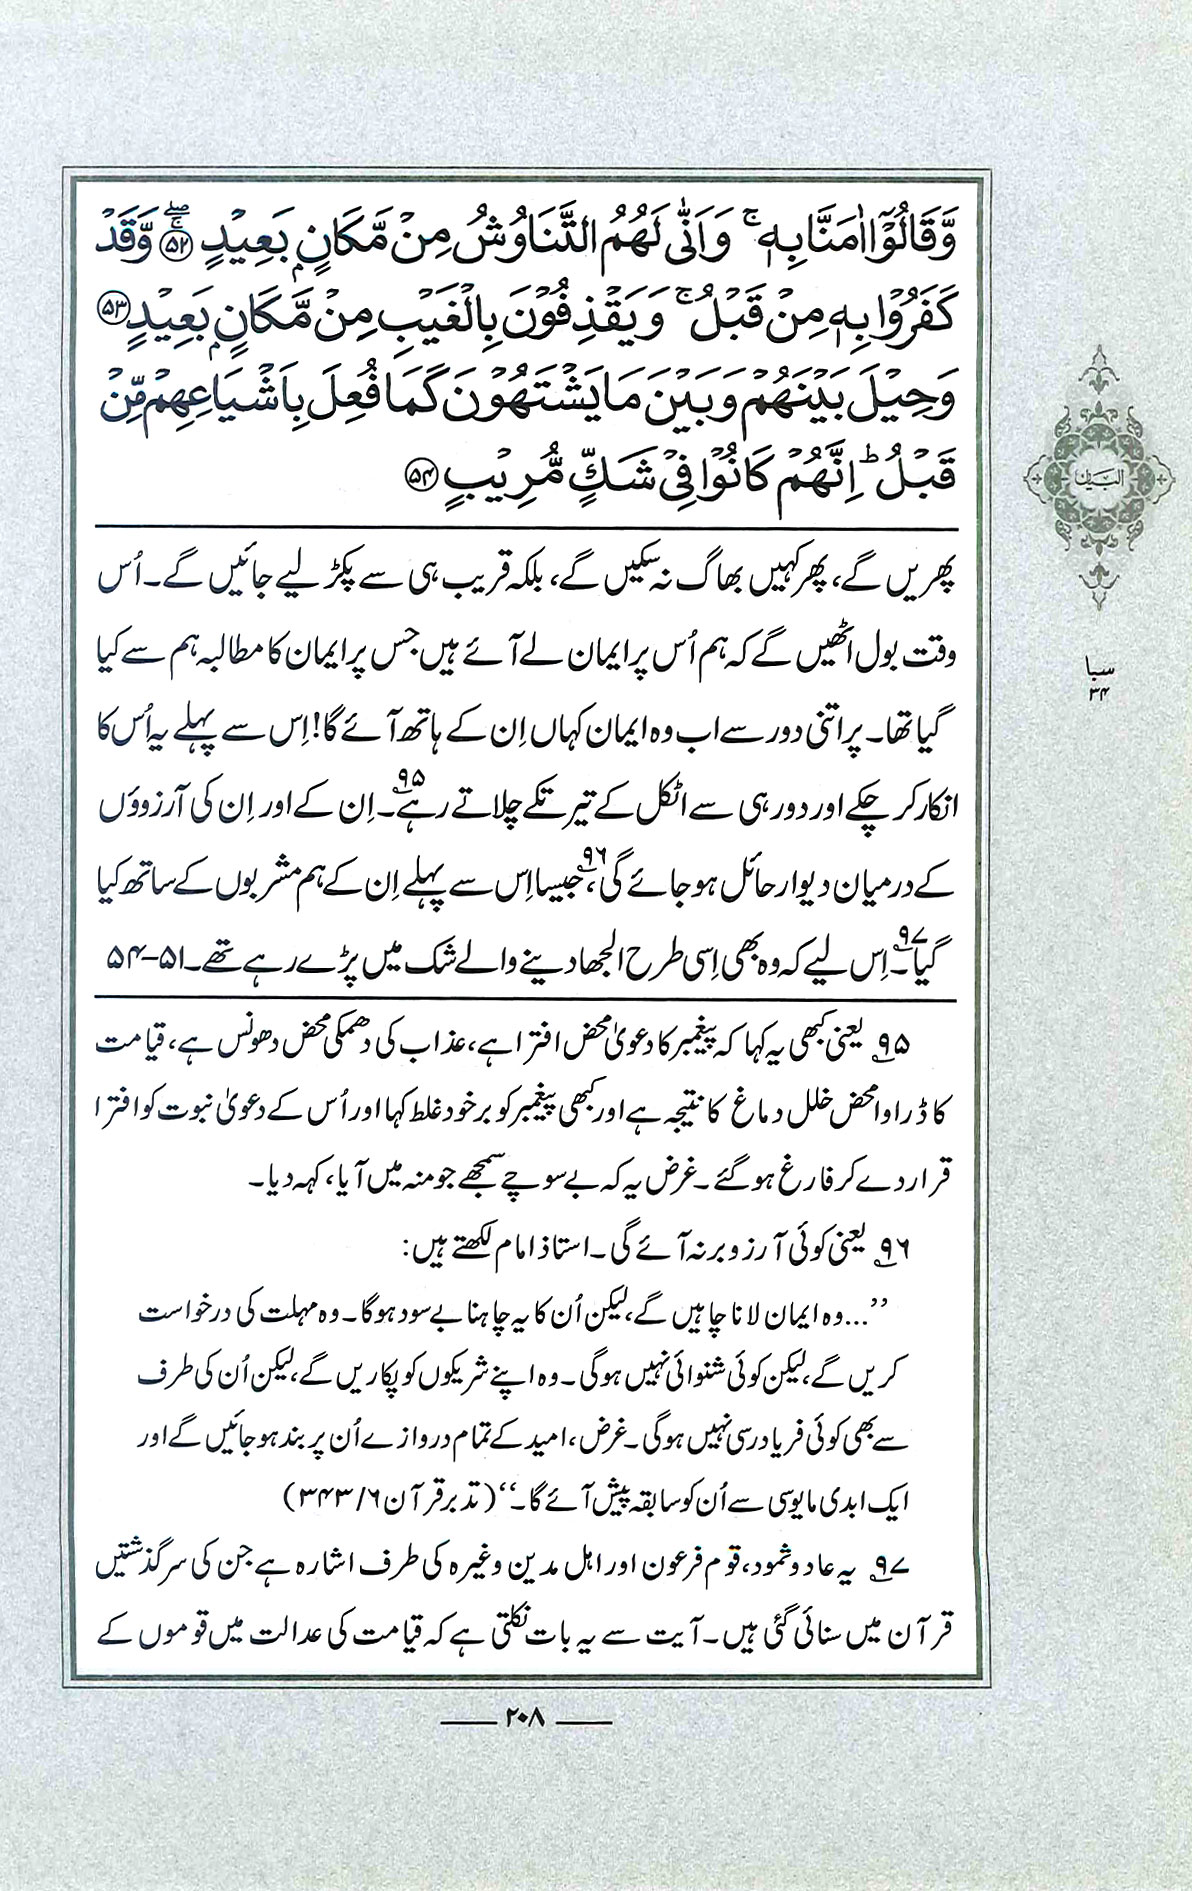 وَّقَالُوْۤا اٰمَنَّا بِهٖ ۚ وَاَنّٰى لَهُمُ التَّنَاوُشُ مِنْ مَّكَانٍۭ بَعِيْدٍ ﴿۵۲﴾ وَّقَدْ
كَفَرُوْا بِهٖ مِنْ قَبْلُ ۚ وَيَقْذِفُوْنَ بِالْغَيْبِ مِنْ مَّكَانٍۭ بَعِيْدٍ ﴿۵۳﴾
وَحِيْلَ بَيْنَهُمْ وَبَيْنَ مَا يَشْتَهُوْنَ كَمَا فُعِلَ بِاَشْيَاعِهِمْ مِّنْ
قَبْلُ ؕ اِنَّهُمْ كَانُوْا فِيْ شَكٍّ مُّرِيْبٍ ﴿۵۴﴾
پھریں گے، پھر کہیں بھاگ نہ سکیں گے، بلکہ قریب ہی سے پکڑ لیے جائیں گے۔ اُس
وقت بول اٹھیں گے کہ ہم اُس پر ایمان لے آئے ہیں جس پر ایمان کا مطالبہ ہم سے کیا
گیا تھا۔ پر اتنی دور سے اب وہ ایمان کہاں اِن کے ہاتھ آئے گا! اِس سے پہلے یہ اُس کا
انکار کر چکے اور دور ہی سے اٹکل کے تیر تکے چلاتے رہے۹۵۔ اِن کے اور اِن کی آرزوؤں
کے درمیان دیوار حائل ہو جائے گی۹۶، جیسا اِس سے پہلے اِن کے ہم مشربوں کے ساتھ کیا
گیا۹۷۔ اِس لیے کہ وہ بھی اِسی طرح الجھا دینے والے شک میں پڑے رہے تھے۔ ۵۱-۵۴
۹۵ یعنی کبھی یہ کہا کہ پیغمبر کا دعویٰ محض افترا ہے، عذاب کی دھمکی محض دھونس ہے، قیامت
کا ڈراوا محض خلل دماغ کا نتیجہ ہے اور کبھی پیغمبر کو بر خود غلط کہا اور اُس کے دعویٰ نبوت کو افترا
قرار دے کر فارغ ہو گئے۔ غرض یہ کہ بے سوچے سمجھے جو منہ میں آیا، کہہ دیا۔
۹۶ یعنی کوئی آرزو بر نہ آئے گی۔ استاذ امام لکھتے ہیں:
’’...وہ ایمان لانا چاہیں گے، لیکن اُن کا یہ چاہنا بے سود ہوگا۔ وہ مہلت کی درخواست
کریں گے، لیکن کوئی شنوائی نہیں ہوگی۔ وہ اپنے شریکوں کو پکاریں گے، لیکن اُن کی طرف
سے بھی کوئی فریاد رسی نہیں ہوگی۔ غرض، امید کے تمام دروازے اُن پر بند ہو جائیں گے اور
ایک ابدی مایوسی سے اُن کو سابقہ پیش آئے گا۔‘‘ (تدبر قرآن ۶/ ۳۴۳)
۹۷ یہ عاد و ثمود، قوم فرعون اور اہل مدین وغیرہ کی طرف اشارہ ہے جن کی سرگذشتیں
قرآن میں سنائی گئی ہیں۔ آیت سے یہ بات نکلتی ہے کہ قیامت کی عدالت میں قوموں کے
البیان
سبا
۳۴
۲۰۸